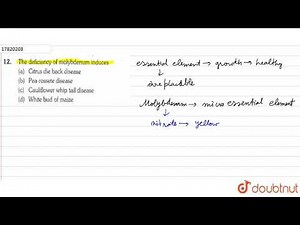 17820208
12. The deficiency of molybdenum induces
(a) Citrus die back disease
(b) Pea rossete disease
(c) Cauliflower whip tail disease
(d) White bud of maize
essential element → growth → healthy
↓
irreplacible
Molybdenum → micro essential element
↓
nitrate → yellow
doubtnut